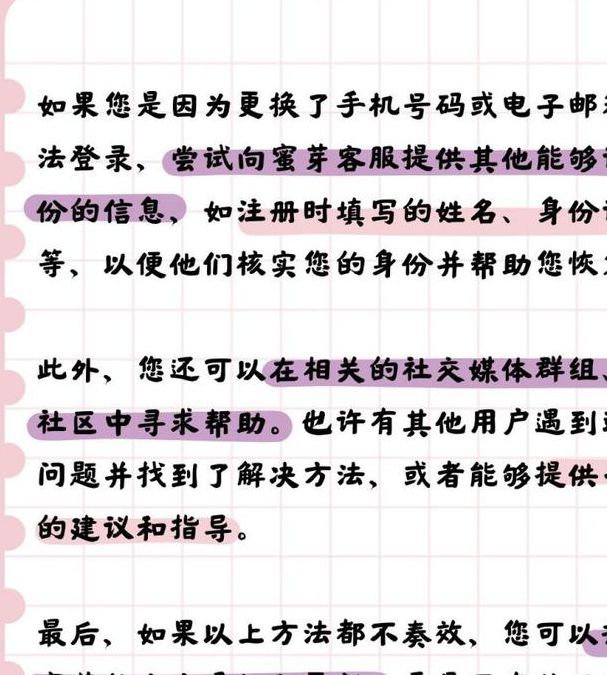 如果您是因为更换了手机号码或电子邮
法登录，尝试向蜜芽客服提供其他能够
份的信息，如注册时填写的姓名、身份
等，以便他们核实您的身份并帮助您恢
此外，您还可以在相关的社交媒体群组、
社区中寻求帮助。也许有其他用户遇到
问题并找到了解决方法，或者能够提供
的建议和指导。
最后，如果以上方法都不奏效，您可以